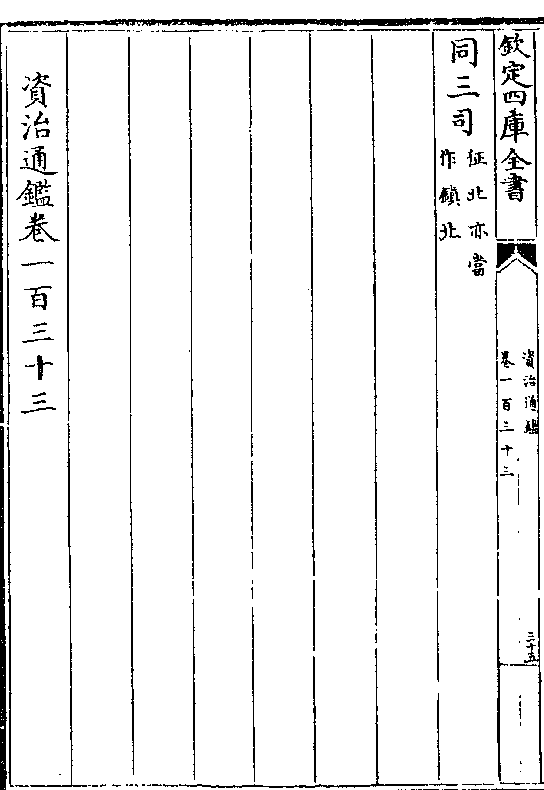 欽定四庫全書
資治通鑑
卷一百三十三
三十五
同三司
征北亦當
作鎮北
資治通鑑卷一百三十三